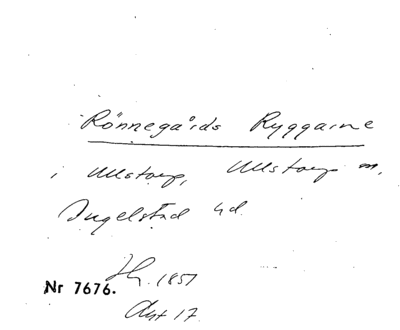 Rönnegårds Ryggarne
i Ullstorp, Ullstorp sn,
Ingelstad hd
Hg. 1857
Nr 7676.
Akt 17.